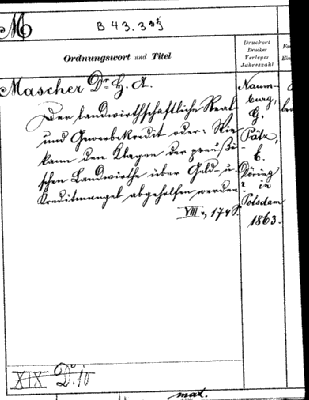 M
B 43.395
Ordnungswort und Titel
Druckort
Drucker
Verleger
Jahreszahl
Mascher Dr. H. A.
Der landwirthschaftliche Real
und Gewerbekredit oder: Wie
kann den Klagen der preußi-
schen Landwirthe über Geld- u.
Kreditmangel abgeholfen werden
VIII, 174 S.
Naum-
burg,
G.
Pätz,
b.
Döring
in
Potsdam
1863.
XIX D. 10